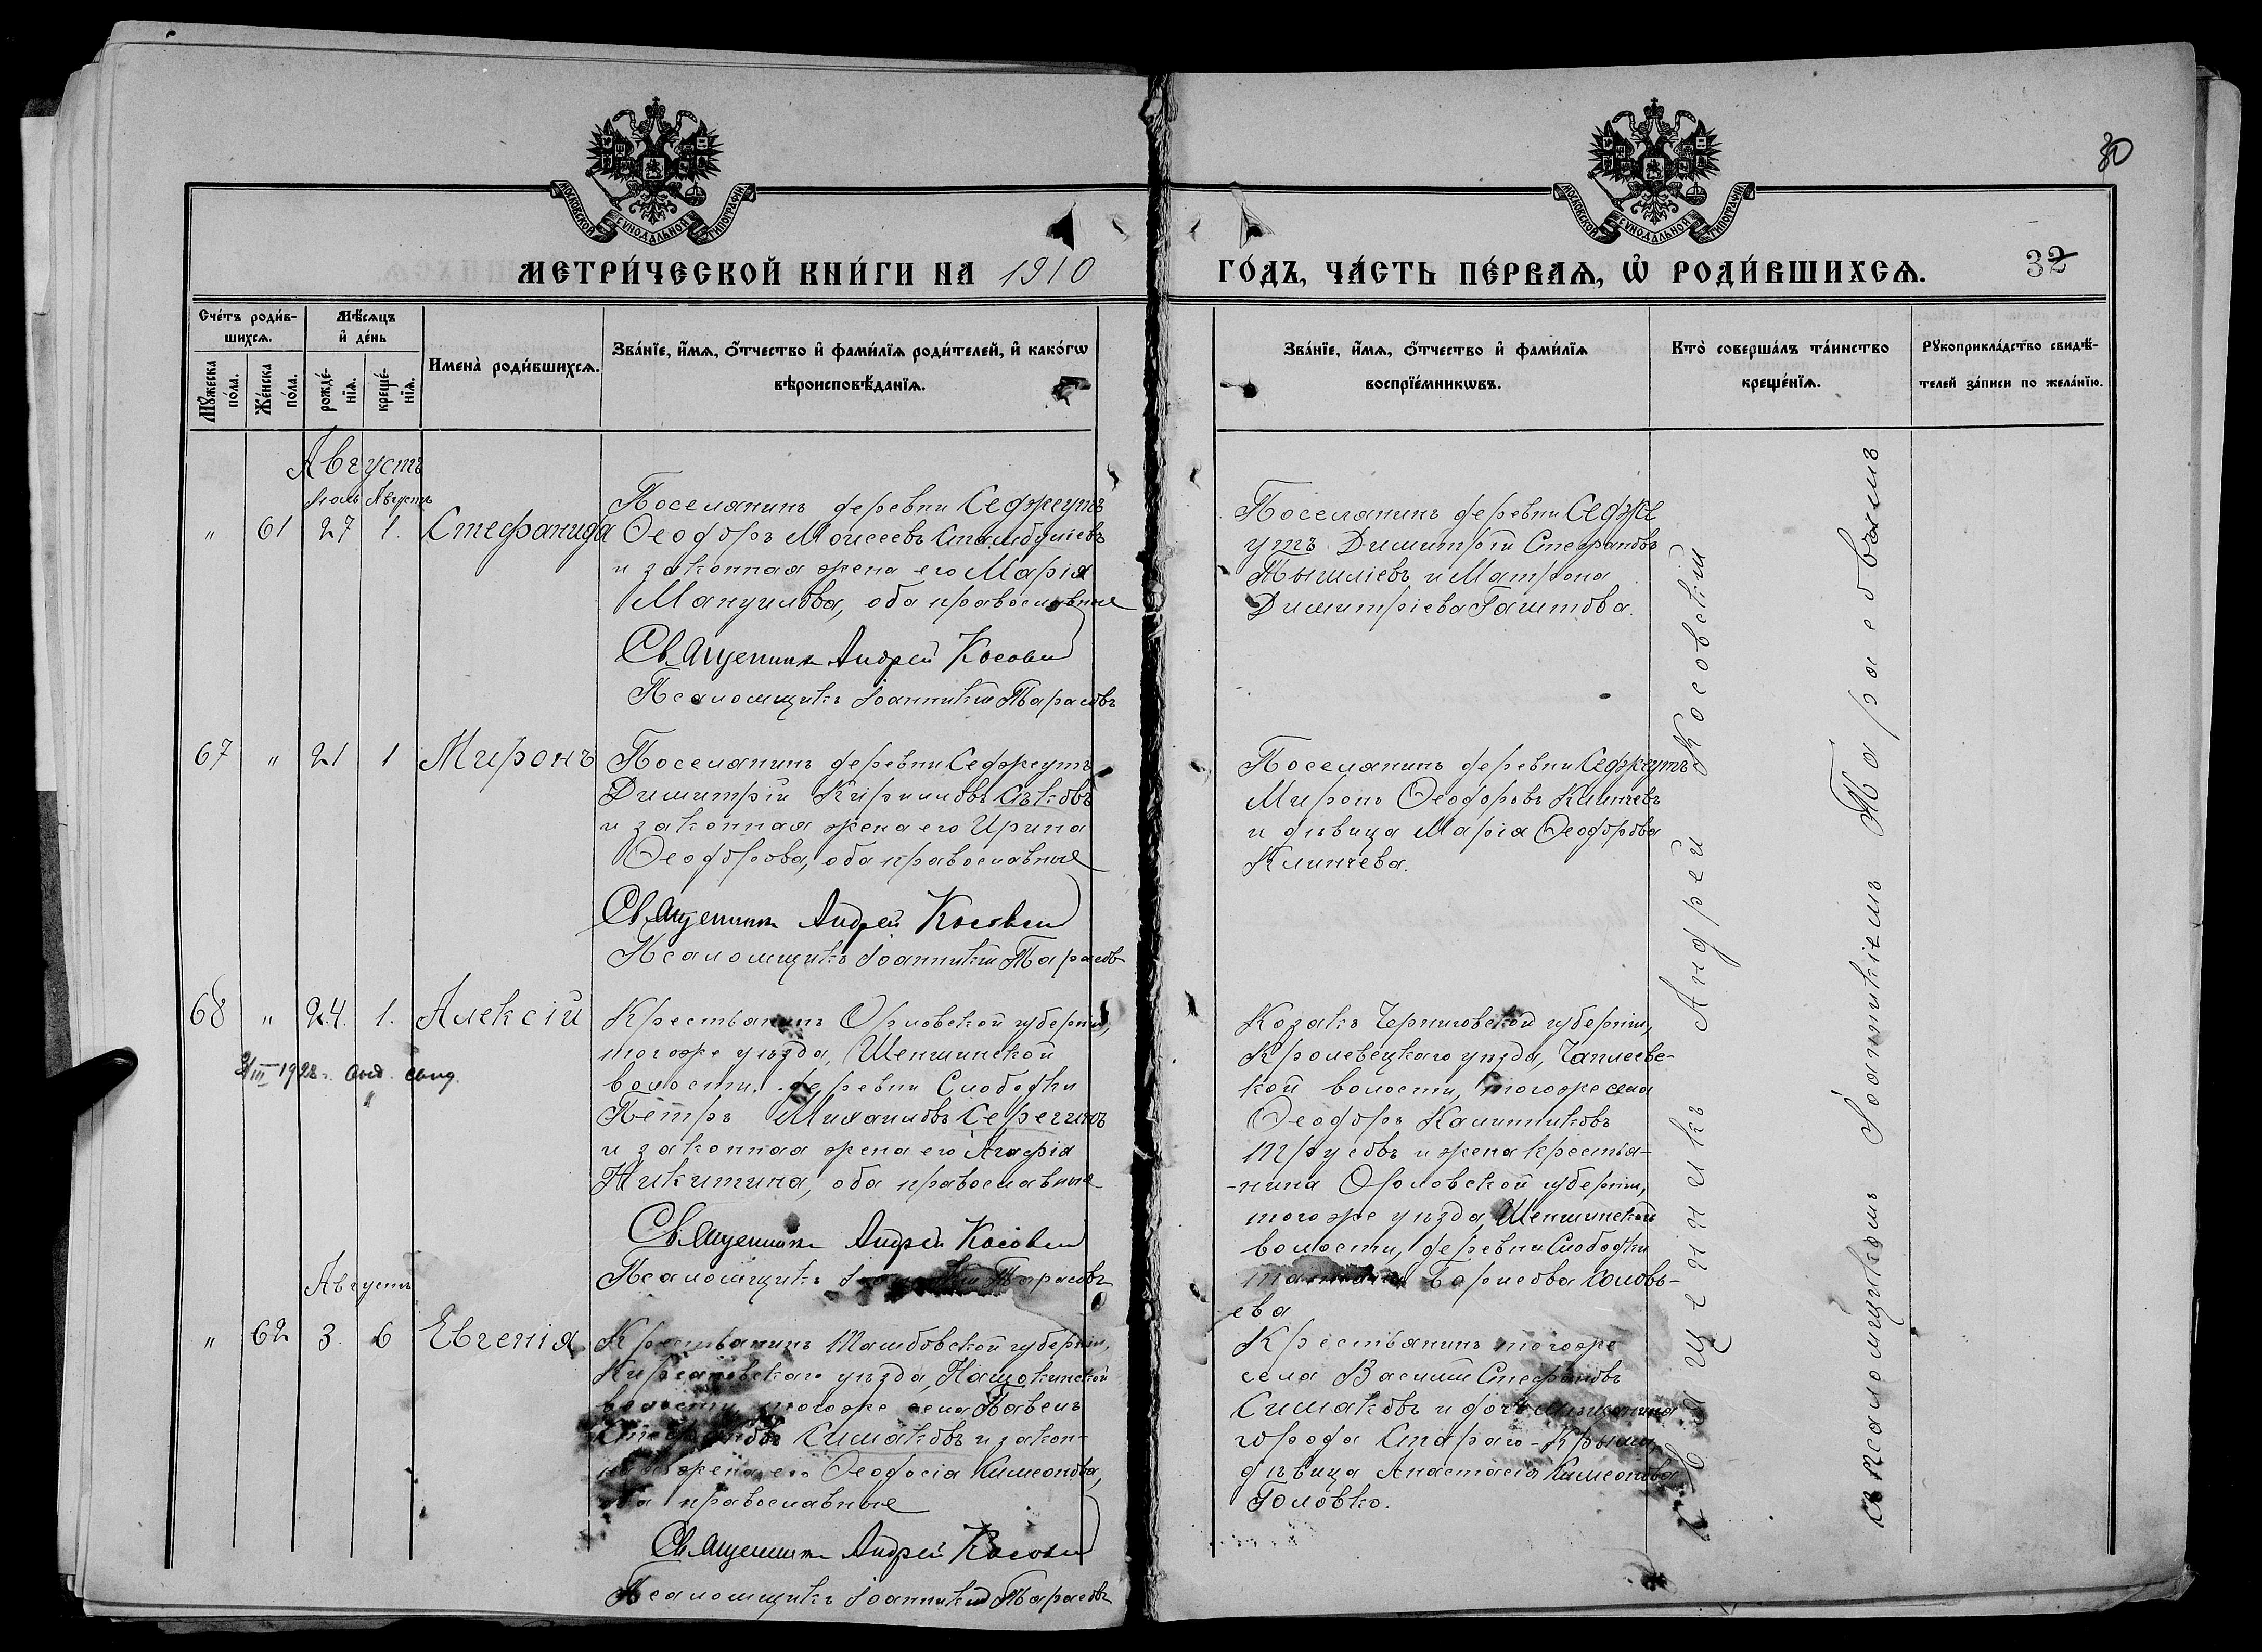 30
МОСКОВСКОЙ СѴНОДАЛЬНОЙ ТИПОГРАФІИ
МОСКОВСКОЙ СѴНОДАЛЬНОЙ ТИПОГРАФІИ
МЕТРИ́ЧЕСКОЙ КНИ́ГИ НА 1910
ГО́ДЪ, ЧА́СТЬ ПЕ́РВАѦ, Ѡ҆ РОДИ́ВШИХСѦ.
32
Сче́тъ роди́в-
шихсѧ.
Мꙋ́жеска
по́ла.
Же́нска
по́ла.
Мѣ́сѧцъ
и҆ де́нь
рожде́-
нїѧ.
креще́-
нїѧ.
Имена̀ роди́вшихсѧ.
Зва́нїе, и҆́мѧ, ѻ҆́тчество и҆ фами́лїѧ роди́телей, и҆ како́гѡ
вѣроисповѣ́данїѧ.
Зва́нїе, и҆́мѧ, ѻ҆́тчество и҆ фами́лїѧ
воспрїе́мникѡвъ.
Кто̀ соверша́лъ та́инство
креще́нїѧ.
Рꙋкоприкла́дство свидѣ́-
телей за́писи по жела́нїю.
Августъ
Іюль Августъ
" 61 27 1. Стефанида
Поселянинъ деревни Седжеутъ
Ѳеодоръ Моисеевъ Стамбуліевъ
и законная жена его Марія
Мануилова, оба православные
Священникъ Андрей Косовскій
Псаломщикъ Іоанникій Тарасовъ
Поселянинъ деревни Седже
утъ Димитрій Стефановъ
Тышліевъ и Матрона
Димитріева Гаштова.
67 " 21 1 Миронъ
Поселянинъ деревни Седжеутъ
Димитрій Кирилловъ Сѣковъ
и законная жена его Ирина
Ѳеодорова, оба православные
Священникъ Андрей Косовскій
Псаломщикъ Іоанникій Тарасовъ
Поселянинъ деревни Седжеутъ
Миронъ Ѳеодоровъ Клинчевъ
и дѣвица Марія Ѳеодорова
Клинчева.
68 " 24. 1. Алексій
III 1928 г. выд. свид.
Крестьянинъ Орловской губерніи,
тогоже уѣзда, Шеншинской
волости, деревни Слободки
Петръ Михаиловъ Серегинъ
и законная жена его Агафія
Никитина, оба православные
Священникъ Андрей Косовскій
Псаломщикъ Іоанникій Тарасовъ
Козакъ Черниговской губерніи,
Кролевецкаго уѣзда, Чаплеевс-
кой волости, тогоже села
Ѳеодоръ Каллиниковъ
Трусовъ и жена крестья-
-нина Орловской губерніи,
тогоже уѣзда, Шеншинской
волости, деревни Слободки
Борисова Соловь-
ева
Августъ
" 62 3. 6 Евгенія
Крестьянинъ Тамбовской губерніи,
Кирсановскаго уѣзда, Нащокинской
волости, тогоже села Павелъ
Стефановъ Симаковъ и закон-
ная жена его Ѳеодосія Симеонова,
оба православные
Священникъ Андрей Косовскій
Псаломщикъ Іоанникій Тарасовъ
Крестьянинъ тогоже
села Василій Стефановъ
Симаковъ и дочь мѣщанина
города Стараго-Крыма,
дѣвица Анастасія Симеонова
Головко.
Священникъ Андрей Косовскій
съ псаломщикомъ Іоанникіемъ Тарасовымъ